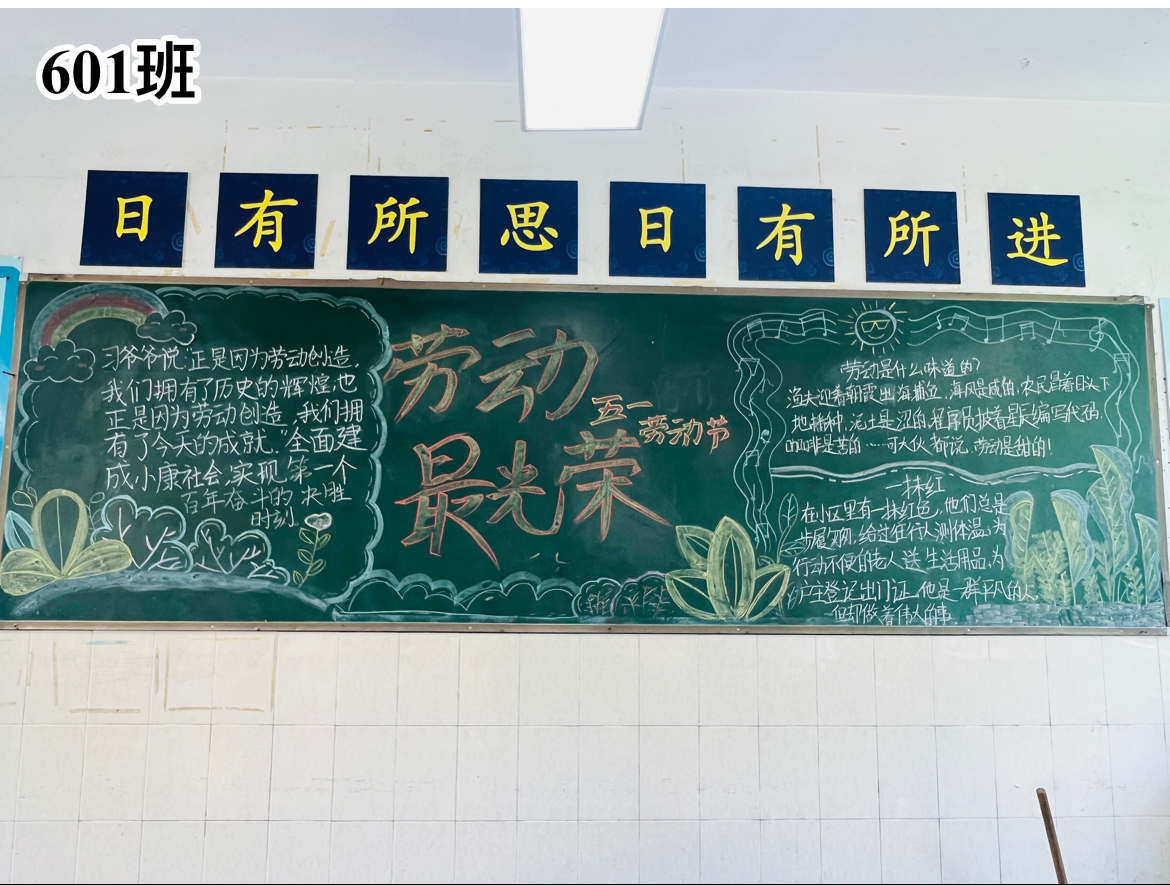 601班
日有所思日有所进
习爷爷说:正是因为劳动创造,
我们拥有了历史的辉煌;也
正是因为劳动创造,我们拥
有了今天的成就."全面建
成小康社会,实现第一个
百年奋斗的决胜
时刻.
劳动
最光荣
五一
劳动节
劳动是什么味道的?
渔夫迎着朝霞出海捕鱼,海风是咸的,农民冒着日头下
地播种,泥土是涩的,程序员披着星辰编写代码,
咖啡是苦的……可大伙都说,劳动是甜的!
一抹红
在小区里有一抹红色,他们总是
步履匆匆,给过往行人测体温,为
行动不便的老人送生活用品,为
户主登记出门证,他是一群平凡的人,
但却做着伟大的事.